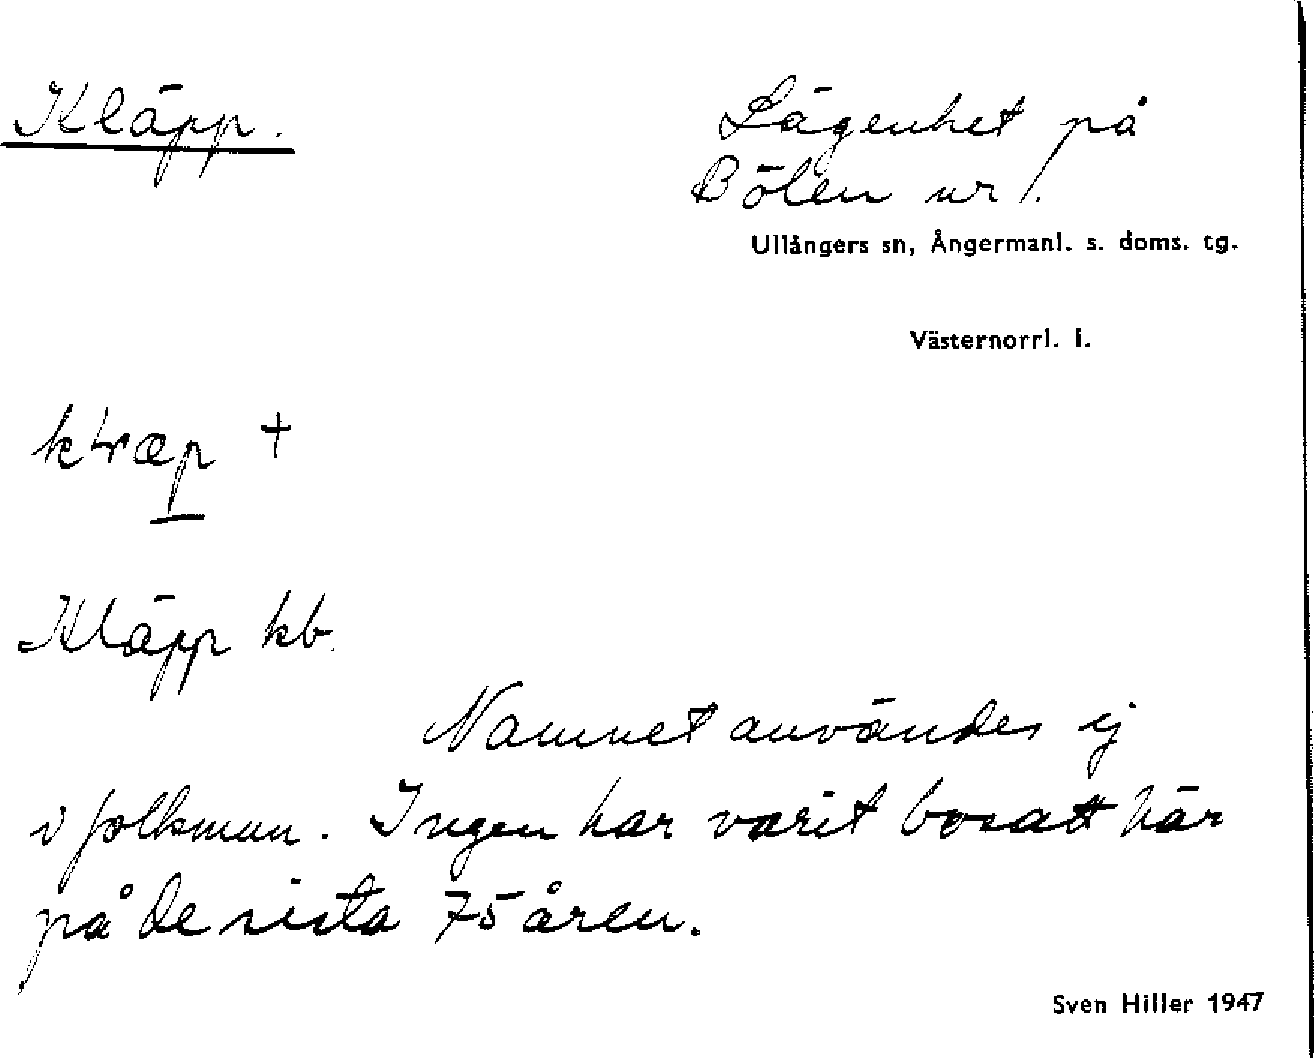 Kläpp.
Lägenhet på
Bölen nr 1.
Ullångers sn, Ångermanl. s. doms. tg.
Västernorrl. l.
Kläpp kb.
Namnet användes ej
i folkmun. Ingen har varit bosatt här
på de sista 75 åren.
Sven Hiller 1947